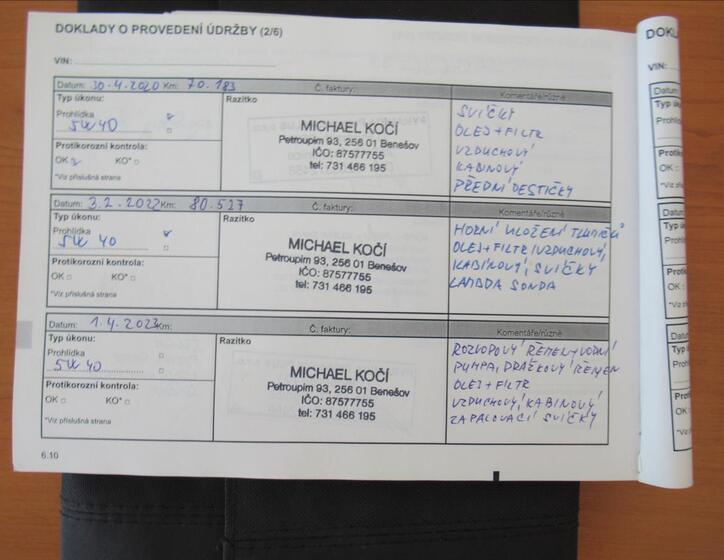 DOKLADY O PROVEDENÍ ÚDRŽBY (2/6)
VIN:
Datum: 30.4.2020 Km: 70.183 Č. faktury: Komentáře/různé
Typ úkonu: Razítko
Prohlídka
5W40
Protikorozní kontrola:
OK KO*
*Viz příslušná strana
MICHAEL KOČÍ
Petroupim 93, 256 01 Benešov
IČO: 87577755
tel: 731 466 195
SVÍČKY
OLEJ+FILTR
VZDUCHOVÝ
KABINOVÝ
PŘEDNÍ DESTIČKY
Datum: 3.2.2022 Km: 80.527 Č. faktury: Komentáře/různé
Typ úkonu: Razítko
Prohlídka
5W 40
Protikorozní kontrola:
OK KO*
*Viz příslušná strana
MICHAEL KOČÍ
Petroupim 93, 256 01 Benešov
IČO: 87577755
tel: 731 466 195
HORNÍ ULOŽENÍ TLUMIČŮ
OLEJ+FILTR, VZDUCHOVÝ,
KABINOVÝ, SVÍČKY
LAMBDA SONDA
Datum: 1.4.2023 Km: Č. faktury: Komentáře/různé
Typ úkonu: Razítko
Prohlídka
5W40
Protikorozní kontrola:
OK KO*
*Viz příslušná strana
MICHAEL KOČÍ
Petroupim 93, 256 01 Benešov
IČO: 87577755
tel: 731 466 195
ROZVODOVÝ ŘEMEN+VODNÍ
PUMPA, DRÁŽKOVÝ ŘEMEN
OLEJ+FILTR
VZDUCHOVÝ, KABINOVÝ
ZAPALOVACÍ SVÍČKY
6.10
VIN: